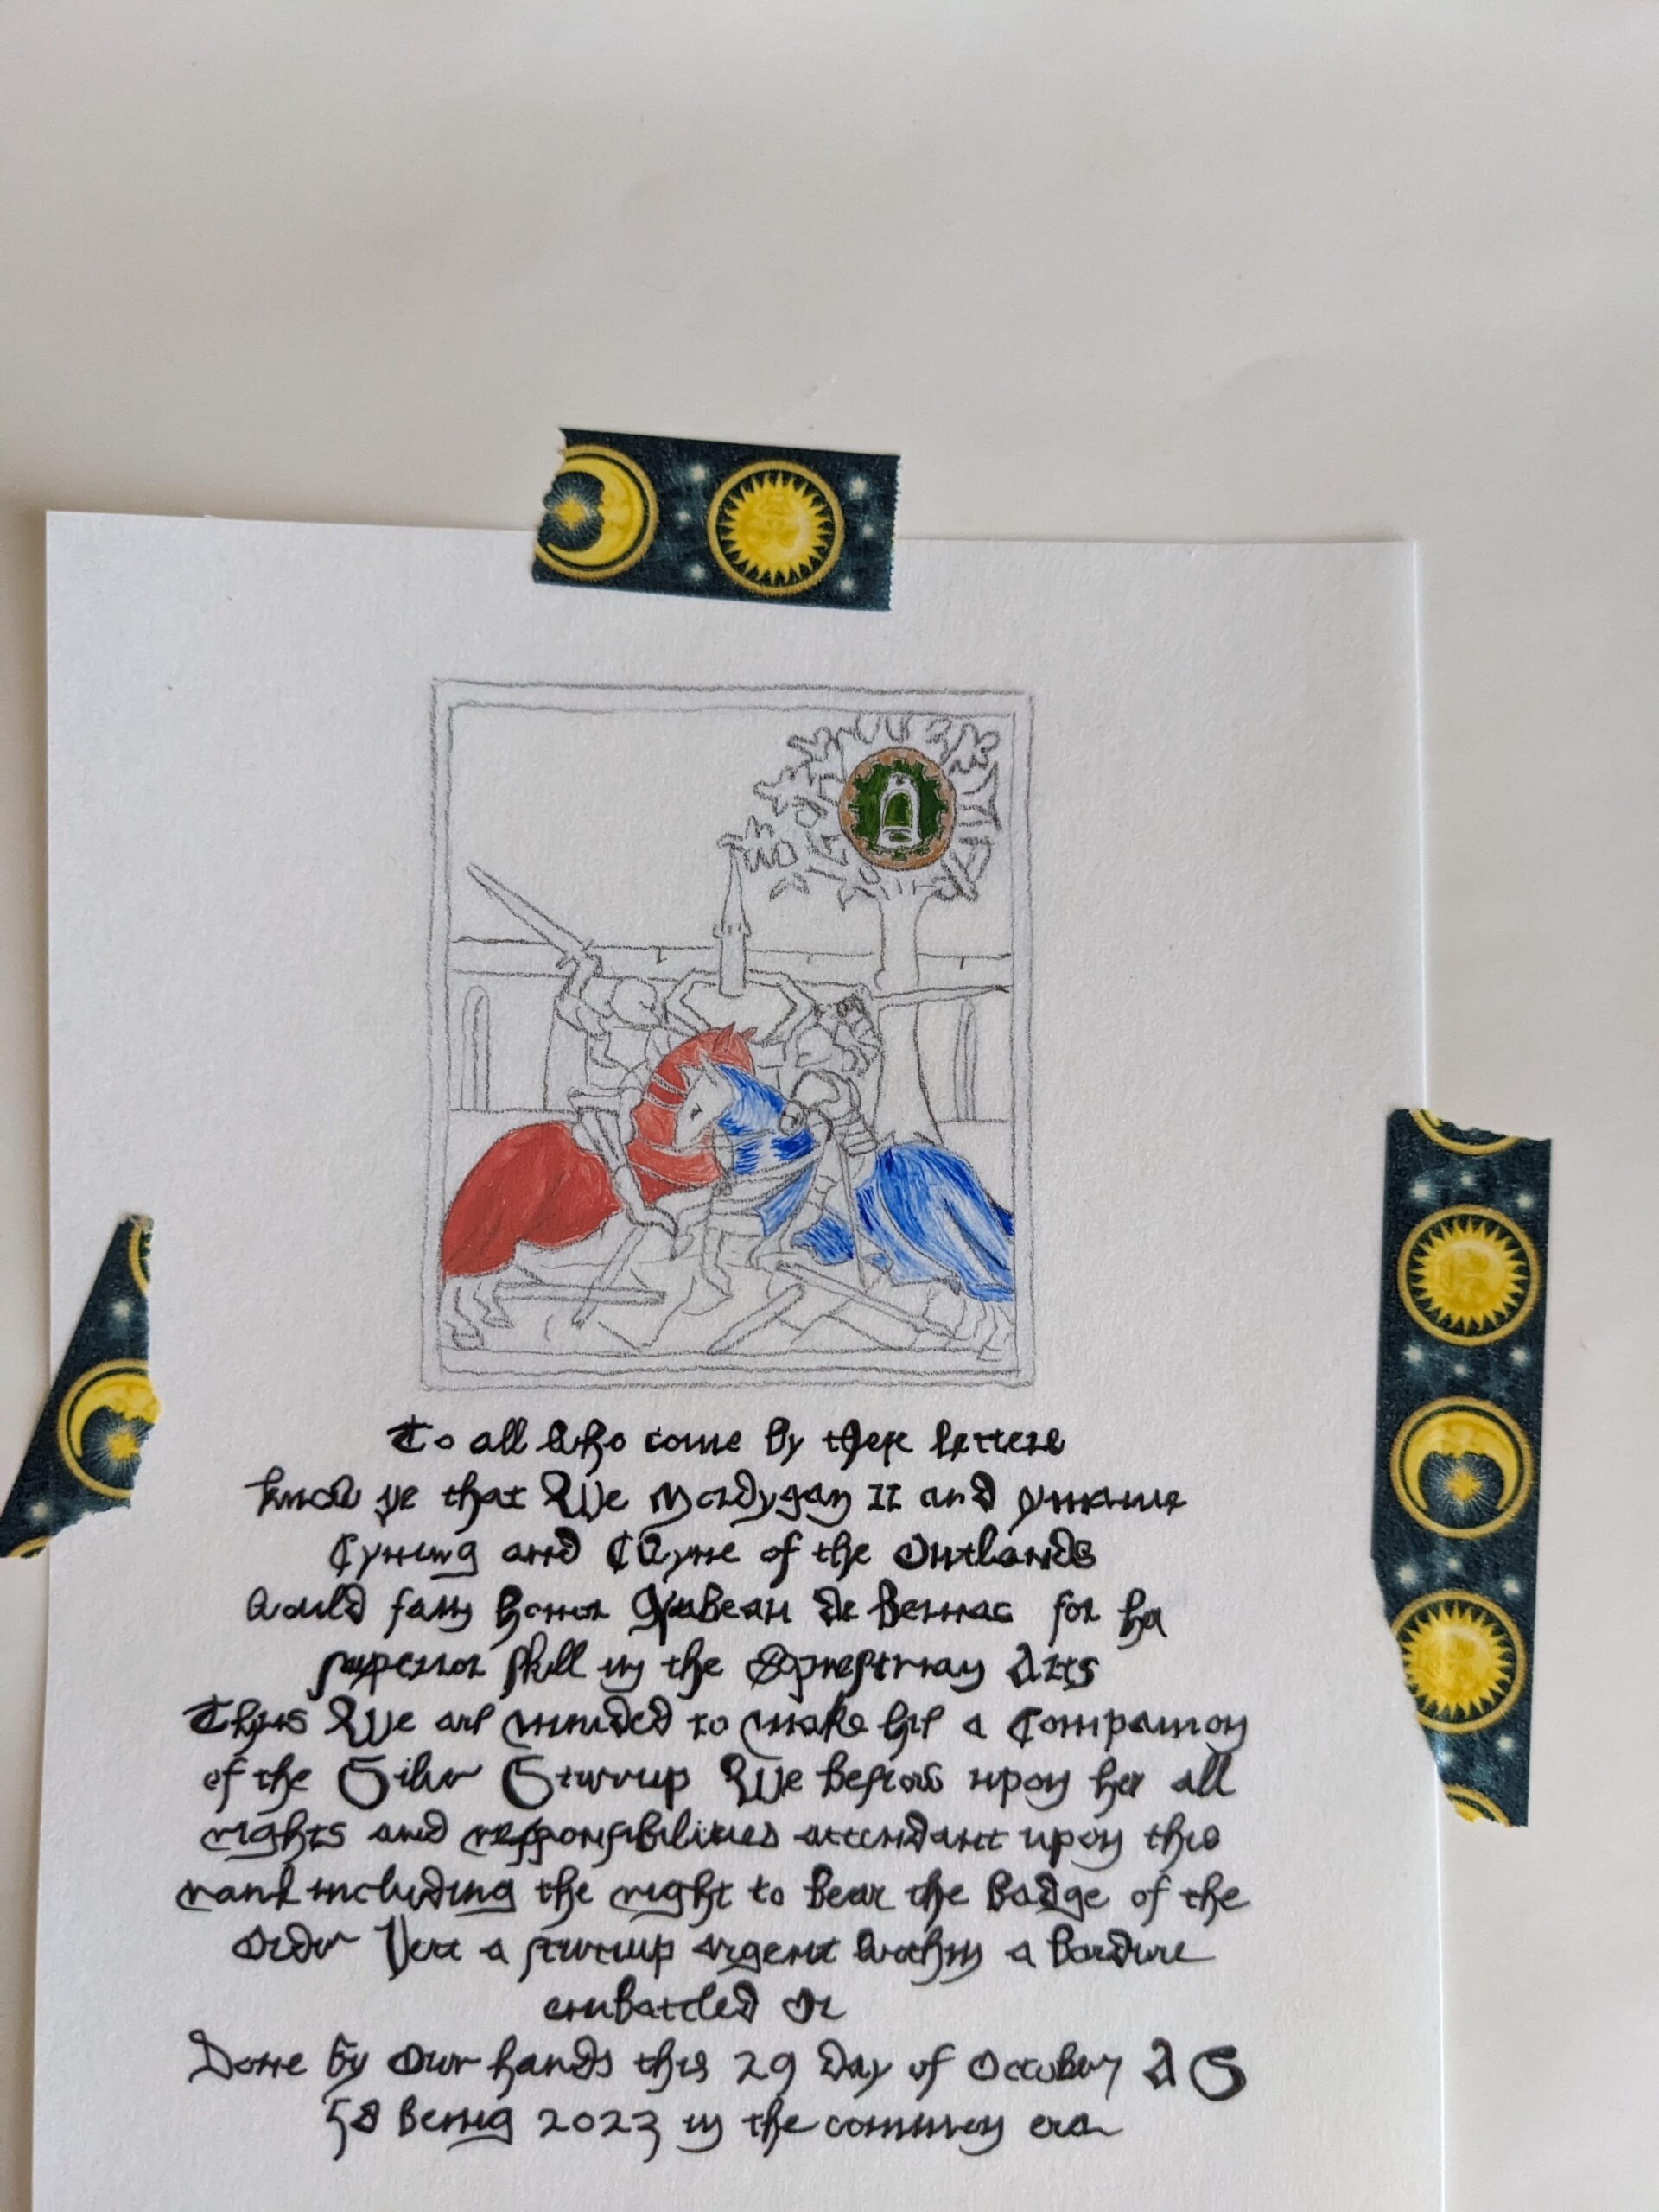 To all who come by these letters
know ye that We Mordygan II and
Cynung and CWyne of the Outlands
would fayn honor de Bernac for her
superior skill in the Equestrian Arts
Thus We are minded to make her a Companion
of the Silver Stirrup We bestow upon her all
rights and responsibilities attendant upon this
rank including the right to bear the badge of the
Order Vert a stirrup argent within a bordure
embattled Or
Done by Our hands this 29 day of October A S
58 being 2023 in the common era